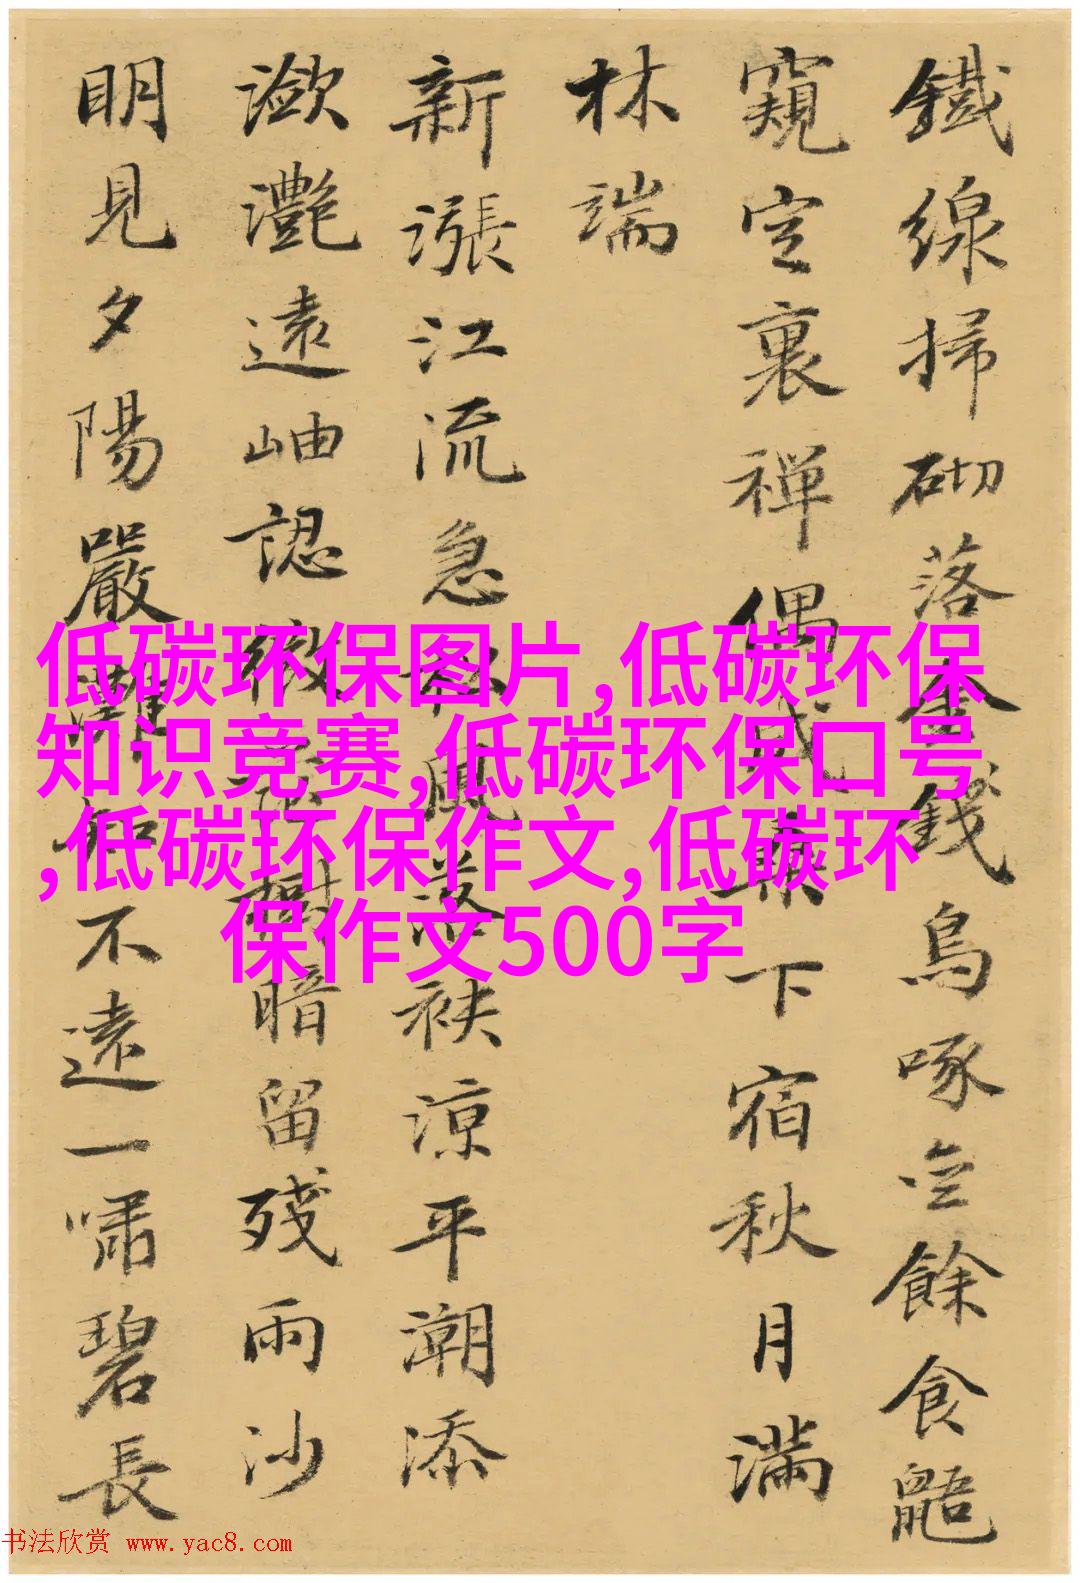 鐵線掃砌落金錢鳥啄空餘食鼯
窺空裏禪偶下宿秋月滿
林端
新漲江流急秋風落袂涼平潮添
瀲灧遠岫認微茫樹暗留殘雨沙
明見夕陽嚴灘知不遠一嘯碧長
低碳环保图片,低碳环保
知识竞赛,低碳环保口号
,低碳环保作文,低碳环
保作文500字
书法欣赏 www.yac8.com